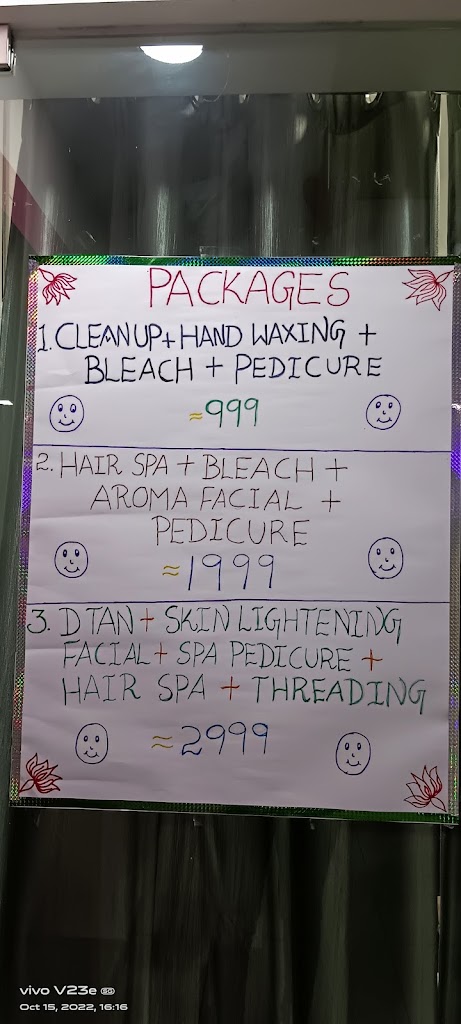 PACKAGES
1. CLEANUP+HAND WAXING +
BLEACH + PEDICURE
≈999
2. HAIR SPA + BLEACH +
AROMA FACIAL +
PEDICURE
≈1999
3. D TAN + SKIN LIGHTENING
FACIAL + SPA PEDICURE +
HAIR SPA + THREADING
≈2999
vivo V23e 5G
Oct 15, 2022, 16:16